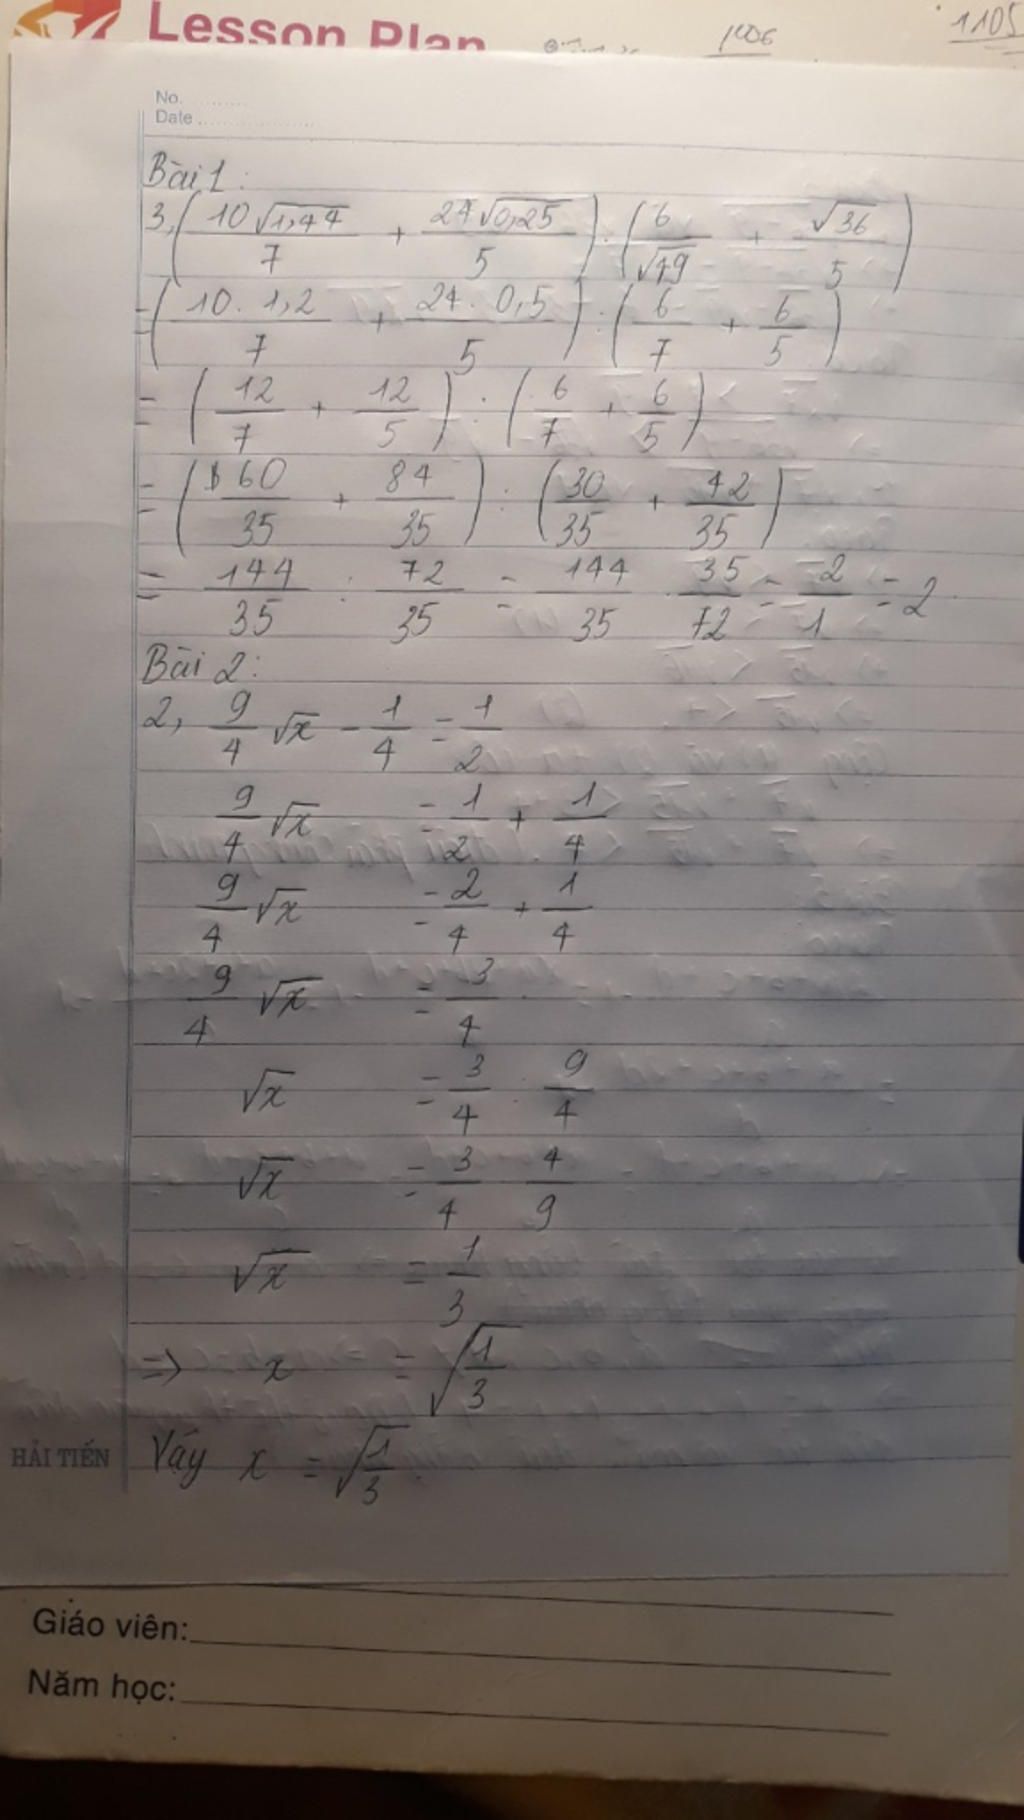 Lesson Plan
1105
No.
Date
Bài 1:
3, (10√1,44/7 + 24√0,25/5) : (6/√49 + √36/5)
= (10 . 1,2/7 + 24 . 0,5/5) : (6/7 + 6/5)
= (12/7 + 12/5) : (6/7 + 6/5)
= (60/35 + 84/35) : (30/35 + 42/35)
= 144/35 : 72/35 = 144/35 . 35/72 = 2/1 = 2
Bài 2:
2, 9/4 √x - 1/4 = 1/2
9/4 √x = 1/2 + 1/4
9/4 √x = 2/4 + 1/4
9/4 √x = 3/4
√x = 3/4 : 9/4
√x = 3/4 . 4/9
√x = 1/3
=> x = √1/3
Vậy x = √1/3
HẢI TIẾN
Giáo viên:
Năm học: